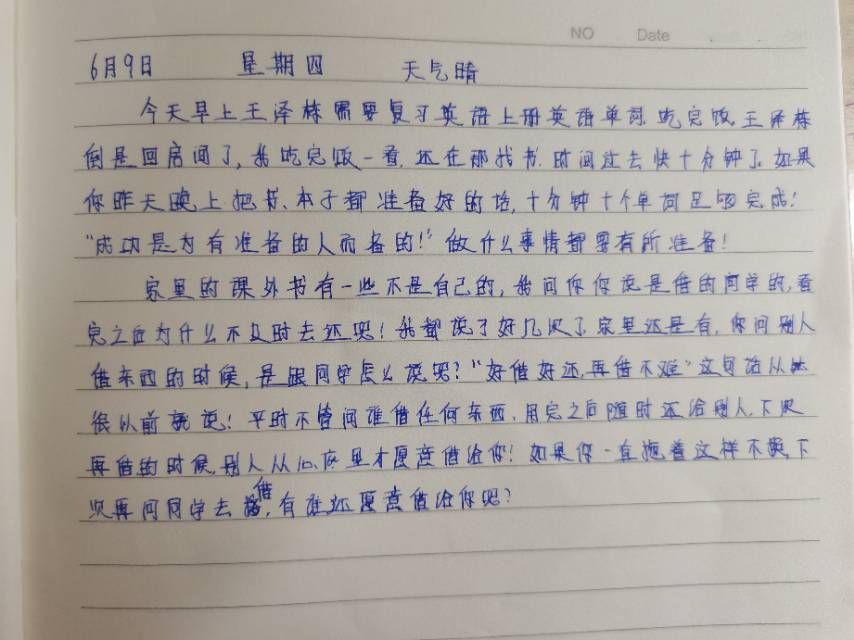 NO Date
6月9日 星期四 天气晴
今天早上王泽栋需要复习英语上册英语单词.吃完饭,王泽栋
倒是回房间了,我吃完饭一看,还在那找书.时间过去快十分钟了.如果
你昨天晚上把书、本子都准备好的话,十分钟十个单词足够完成!
“成功是为有准备的人而备的!”做什么事情都要有所准备!
家里的课外书有一些不是自己的,我问你你说是借的同学的,看
完之后为什么不及时去还呢!我都说了好几次了家里还是有,你问别人
借东西的时候,是跟同学怎么说呢?“好借好还,再借不难”这句话从
很以前就说!平时不管问谁借任何东西、用完之后随时还给别人,下次
再借的时候,别人从心底里才愿意借给你!如果你一直拖着这样不还,下
次再问同学去借,有谁还愿意借给你呢?